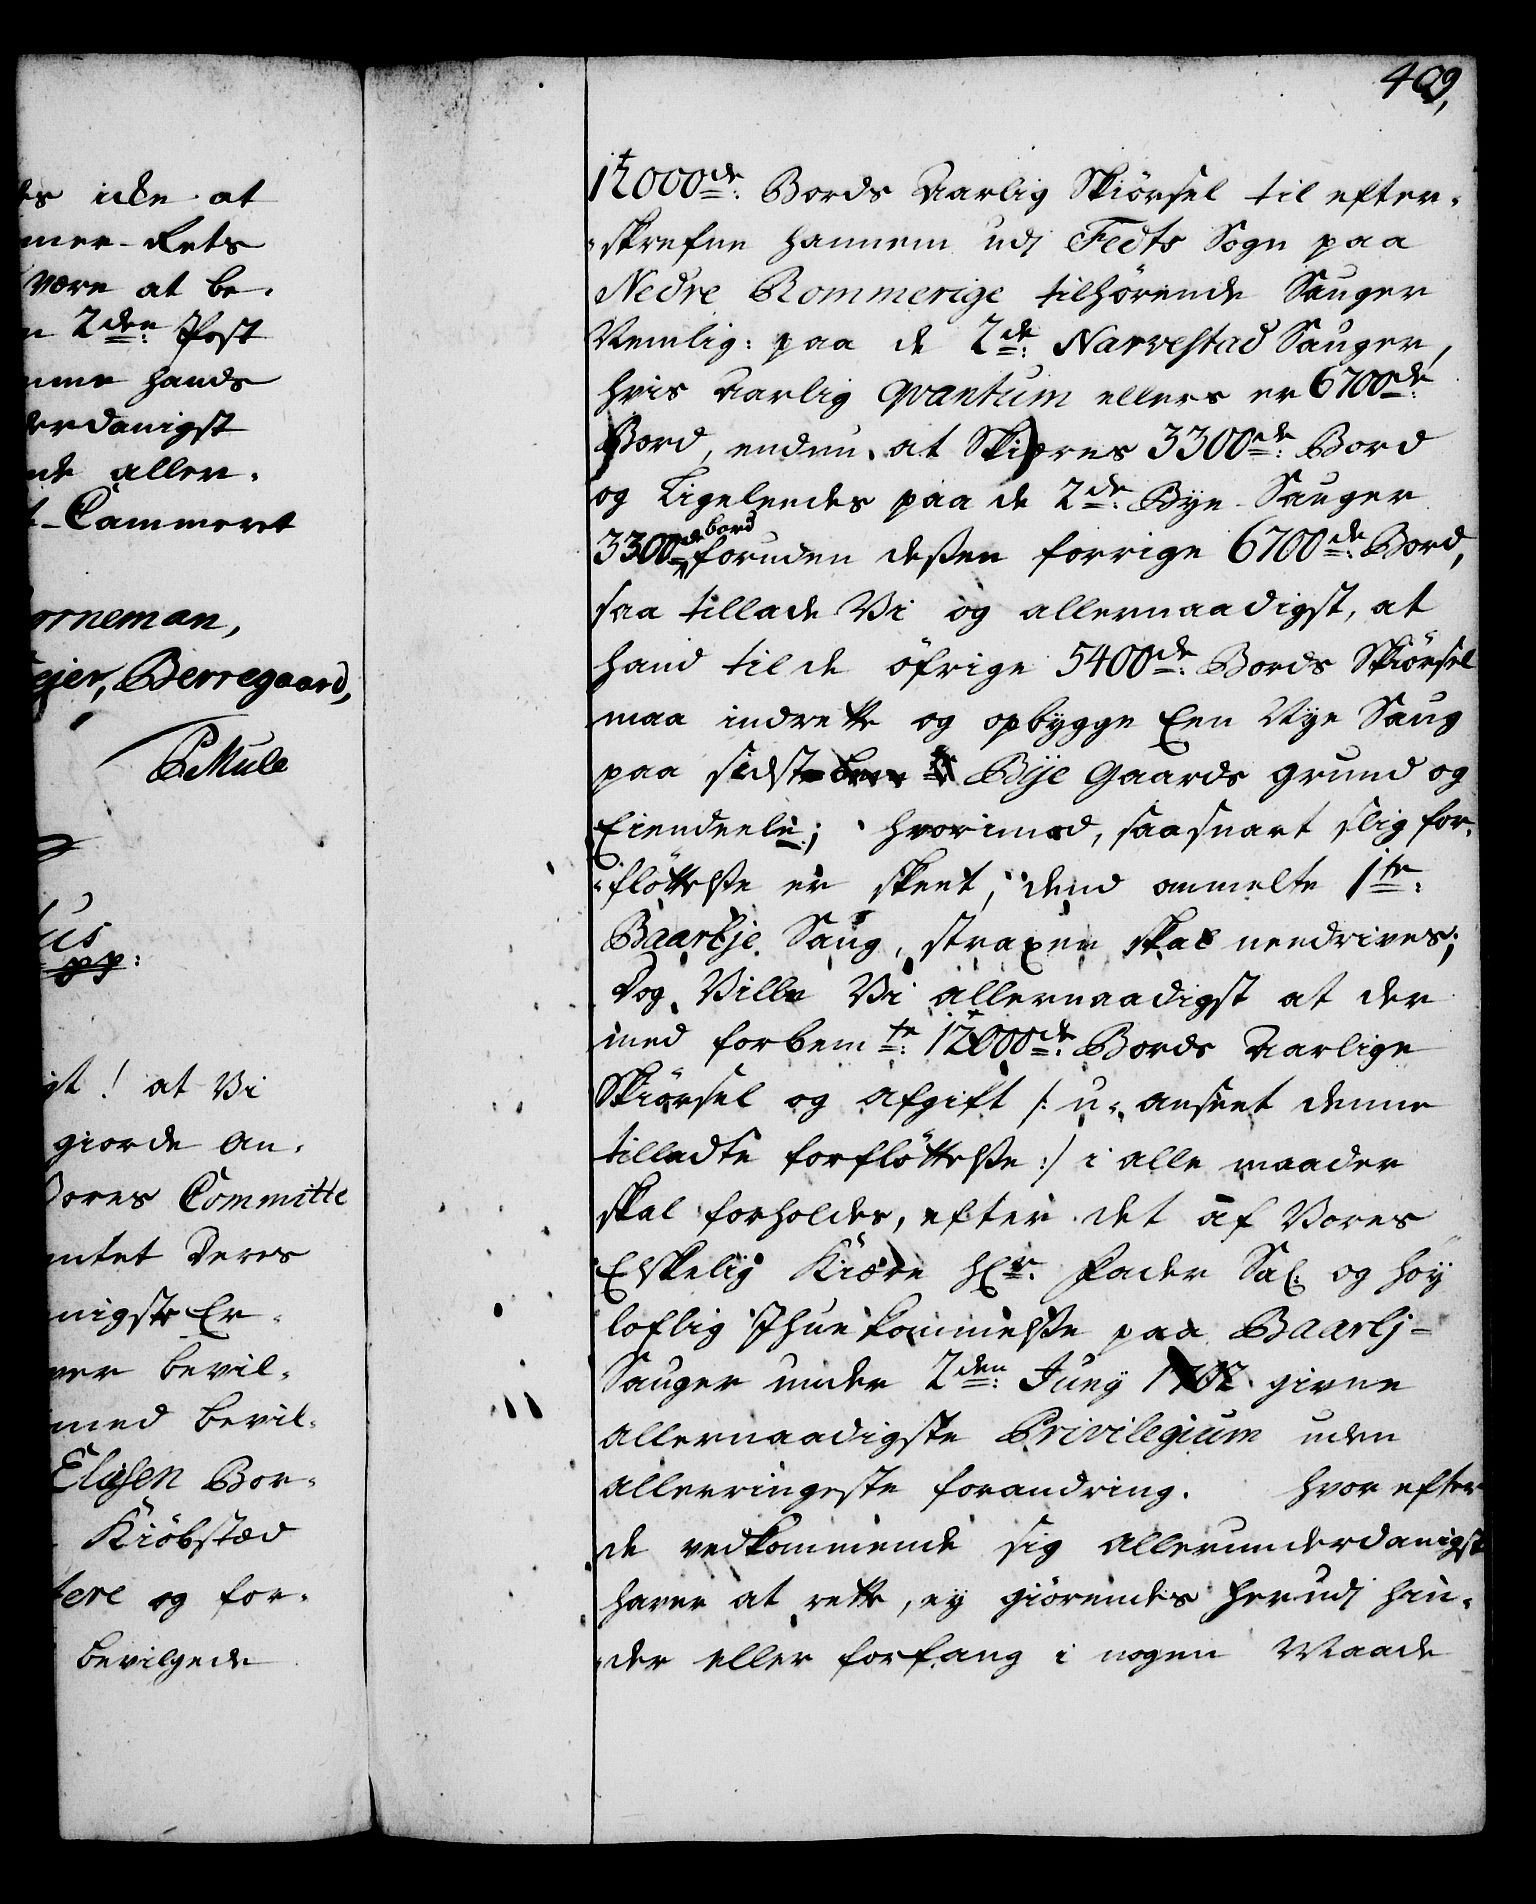 409,
es icke at
mer-Rets
være at be-
n 2den Post
mme hands
derdanigst
nde aller-
t-Cammeret
orneman,
ejer, Berregaard,
PMule
us
pp:
gt! at Vi
giorde an-
Vores Committe
ntet Deres
nigste Er-
ver bevil-
med bevil-
Elisen Bor-
Kiöbstæd
tere og for-
bevilgede
12000de: Bords Aarlig Skiörsel til efter-
-skrefne hannem udj Fedts Sogn paa
Nedre Rommerige tilhörende Sauger
Nemlig: paa de 2de: Narvestad Sauger,
hvis Aarlig qvantum ellers er 6700de:
Bord, endnu at Skiæres 3300de: Bord
og Ligeleedes paa de 2de: Bye-Sauger
3300de bord foruden deßen forrige 6700de: Bord,
saa tillade Vi og allernaadigst, at
hand til de öfrige 5400de: Bords Skiörsel
maa indrette og opbygge Een Nye Saug
paa sidst Bye Gaards grund og
Eiendeele; hvorimod, saasnart slig for-
-flöttelße er skeet, dend ommelte 1te:
Baarlje Saug, straxen skal needrives;
Dog Ville Vi allernaadigst at der
med forbemte: 12000de: Bords Aarlige
Skiörsel og afgift /: u-anseet denne
tilladte forflöttelße :/ i alle maader
skal forholdes, efter det af Vores
Elskelig Kiære Hr. Fader Sal. og höy
loflig Ihuekommelße paa Baarlj-
Sauger under 2den: Junij 1702 givne
allernaadigste Privilegium uden
allerringeste forandring. Hvor efter
de vedkommende sig allerunderdanigst
haver at rette, ej giörendes herudj hin-
-der eller forfang i nogen Maade